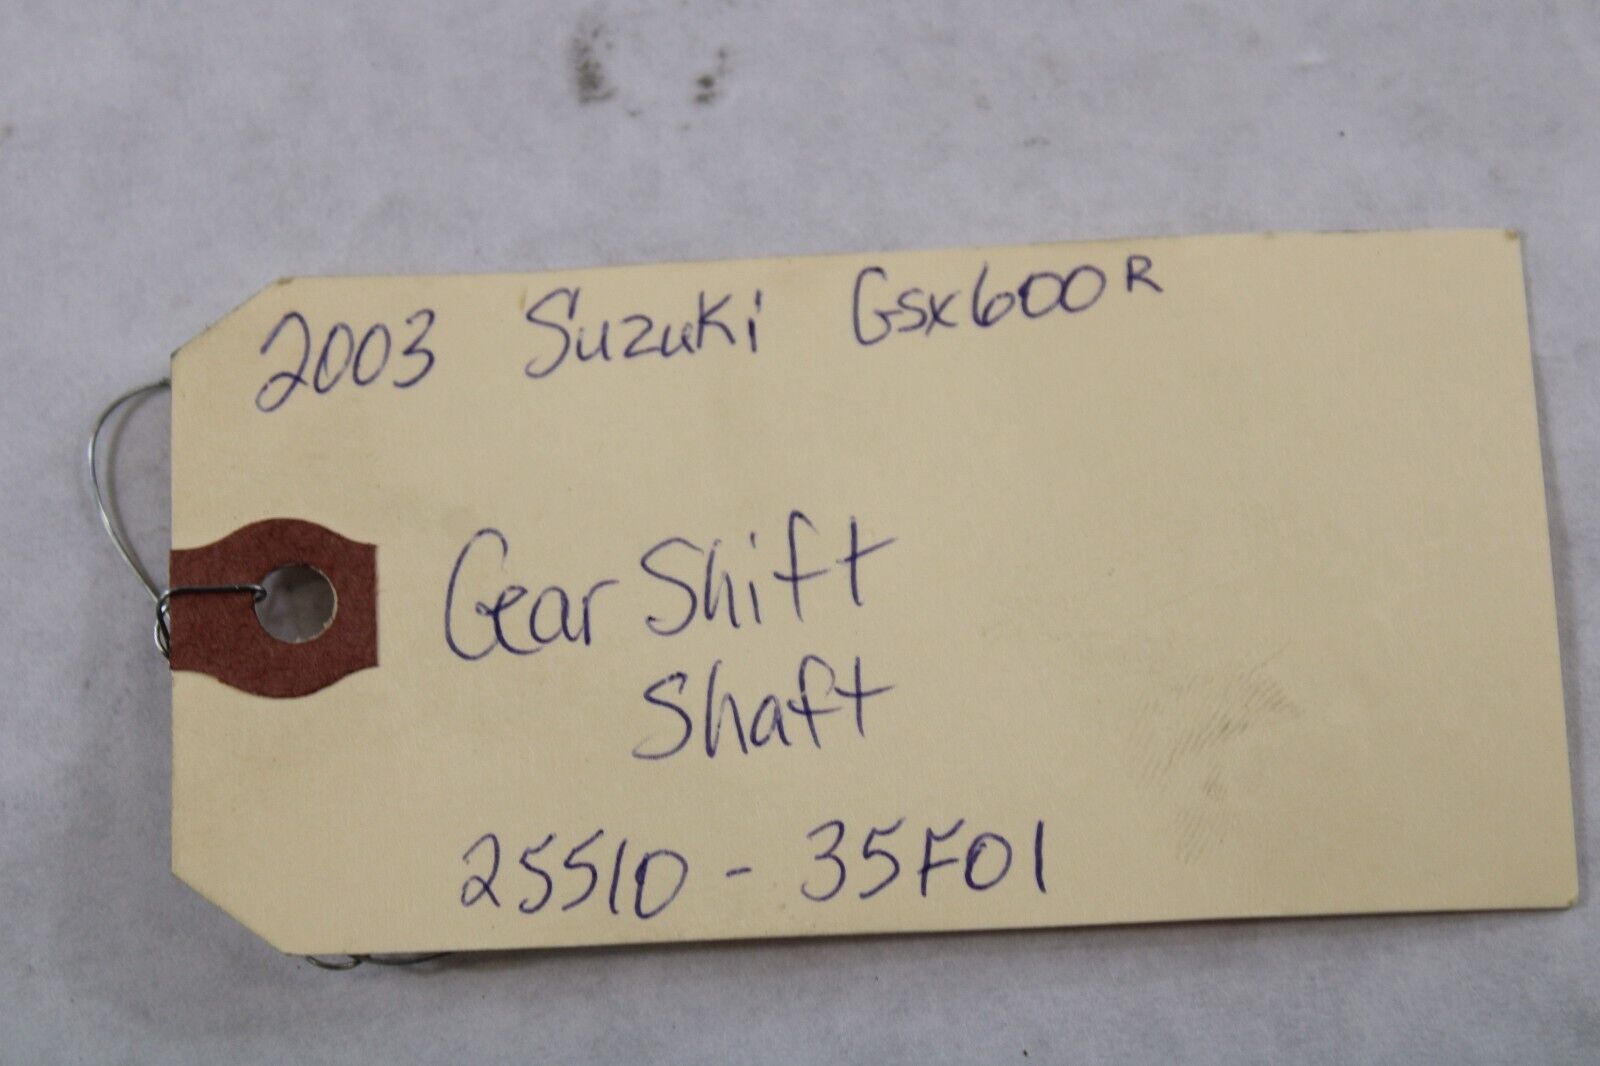 2003 Suzuki Gsx600R
Gear Shift
Shaft
25510-35F01